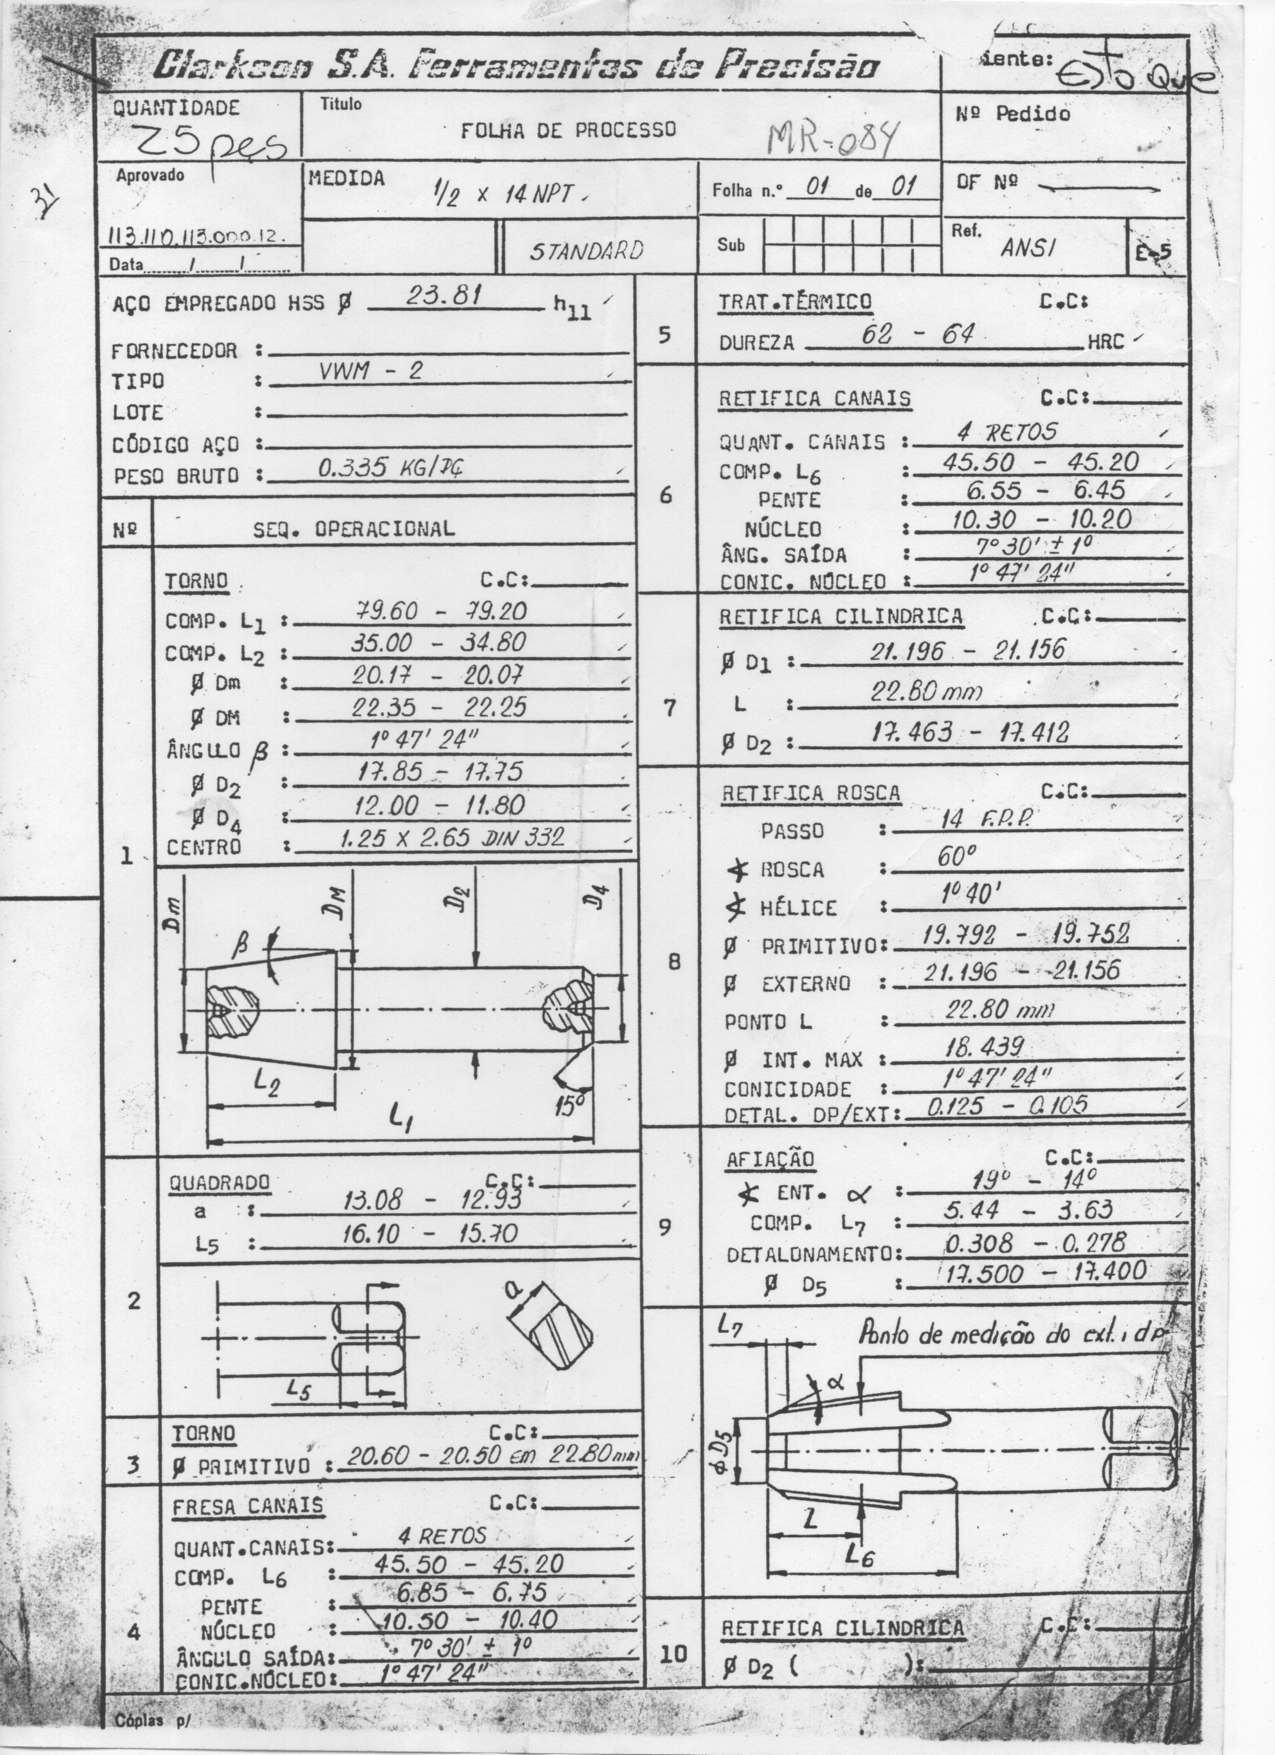 Clarkson S.A. Ferramentas de Precisão
iente: EstoQue
QUANTIDADE
25 pçs
Titulo
FOLHA DE PROCESSO
MR-084
Nº Pedido
Aprovado
113.110.113.000.12.
Data / /
MEDIDA
1/2 x 14 NPT
STANDARD
Folha n.º 01 de 01
Sub
OF Nº
Ref. ANSI
E-5
31
AÇO EMPREGADO HSS Ø 23.81 h11
FORNECEDOR :
TIPO : VWM - 2
LOTE :
CÓDIGO AÇO :
PESO BRUTO : 0.335 KG/PÇ
Nº SEQ. OPERACIONAL
1
TORNO C.C:
COMP. L1 : 79.60 - 79.20
COMP. L2 : 35.00 - 34.80
Ø Dm : 20.17 - 20.07
Ø DM : 22.35 - 22.25
ÂNGULO β : 1º 47' 24"
Ø D2 : 17.85 - 17.75
Ø D4 : 12.00 - 11.80
CENTRO : 1.25 X 2.65 DIN 332
Dm
β
DM
D2
D4
L2
15º
L1
2
QUADRADO C.C:
a : 13.08 - 12.93
L5 : 16.10 - 15.70
a
L5
3
TORNO C.C:
Ø PRIMITIVO : 20.60 - 20.50 em 22.80mm
4
FRESA CANAIS C.C:
QUANT.CANAIS: 4 RETOS
COMP. L6 : 45.50 - 45.20
PENTE : 6.85 - 6.75
NÚCLEO : 10.50 - 10.40
ÂNGULO SAÍDA: 7º 30' ± 1º
CONIC.NÚCLEO: 1º 47' 24"
Cópias p/
5
TRAT.TÉRMICO C.C:
DUREZA 62 - 64 HRC
6
RETIFICA CANAIS C.C:
QUANT. CANAIS : 4 RETOS
COMP. L6 : 45.50 - 45.20
PENTE : 6.55 - 6.45
NÚCLEO : 10.30 - 10.20
ÂNG. SAÍDA : 7º 30' ± 1º
CONIC. NÚCLEO : 1º 47' 24"
7
RETIFICA CILINDRICA C.C:
Ø D1 : 21.196 - 21.156
L : 22.80 mm
Ø D2 : 17.463 - 17.412
8
RETIFICA ROSCA C.C:
PASSO : 14 F.P.P.
∢ ROSCA : 60º
∢ HÉLICE : 1º 40'
Ø PRIMITIVO: 19.792 - 19.752
Ø EXTERNO : 21.196 - 21.156
PONTO L : 22.80 mm
Ø INT. MAX : 18.439
CONICIDADE : 1º 47' 24"
DETAL. DP/EXT: 0.125 - 0.105
9
AFIAÇÃO C.C:
∢ ENT. α : 19º - 14º
COMP. L7 : 5.44 - 3.63
DETALONAMENTO: 0.308 - 0.278
Ø D5 : 17.500 - 17.400
L7
Ponto de medição do ext. i dp
α
ØD5
L
L6
10
RETIFICA CILINDRICA C.C:
Ø D2 ( ):